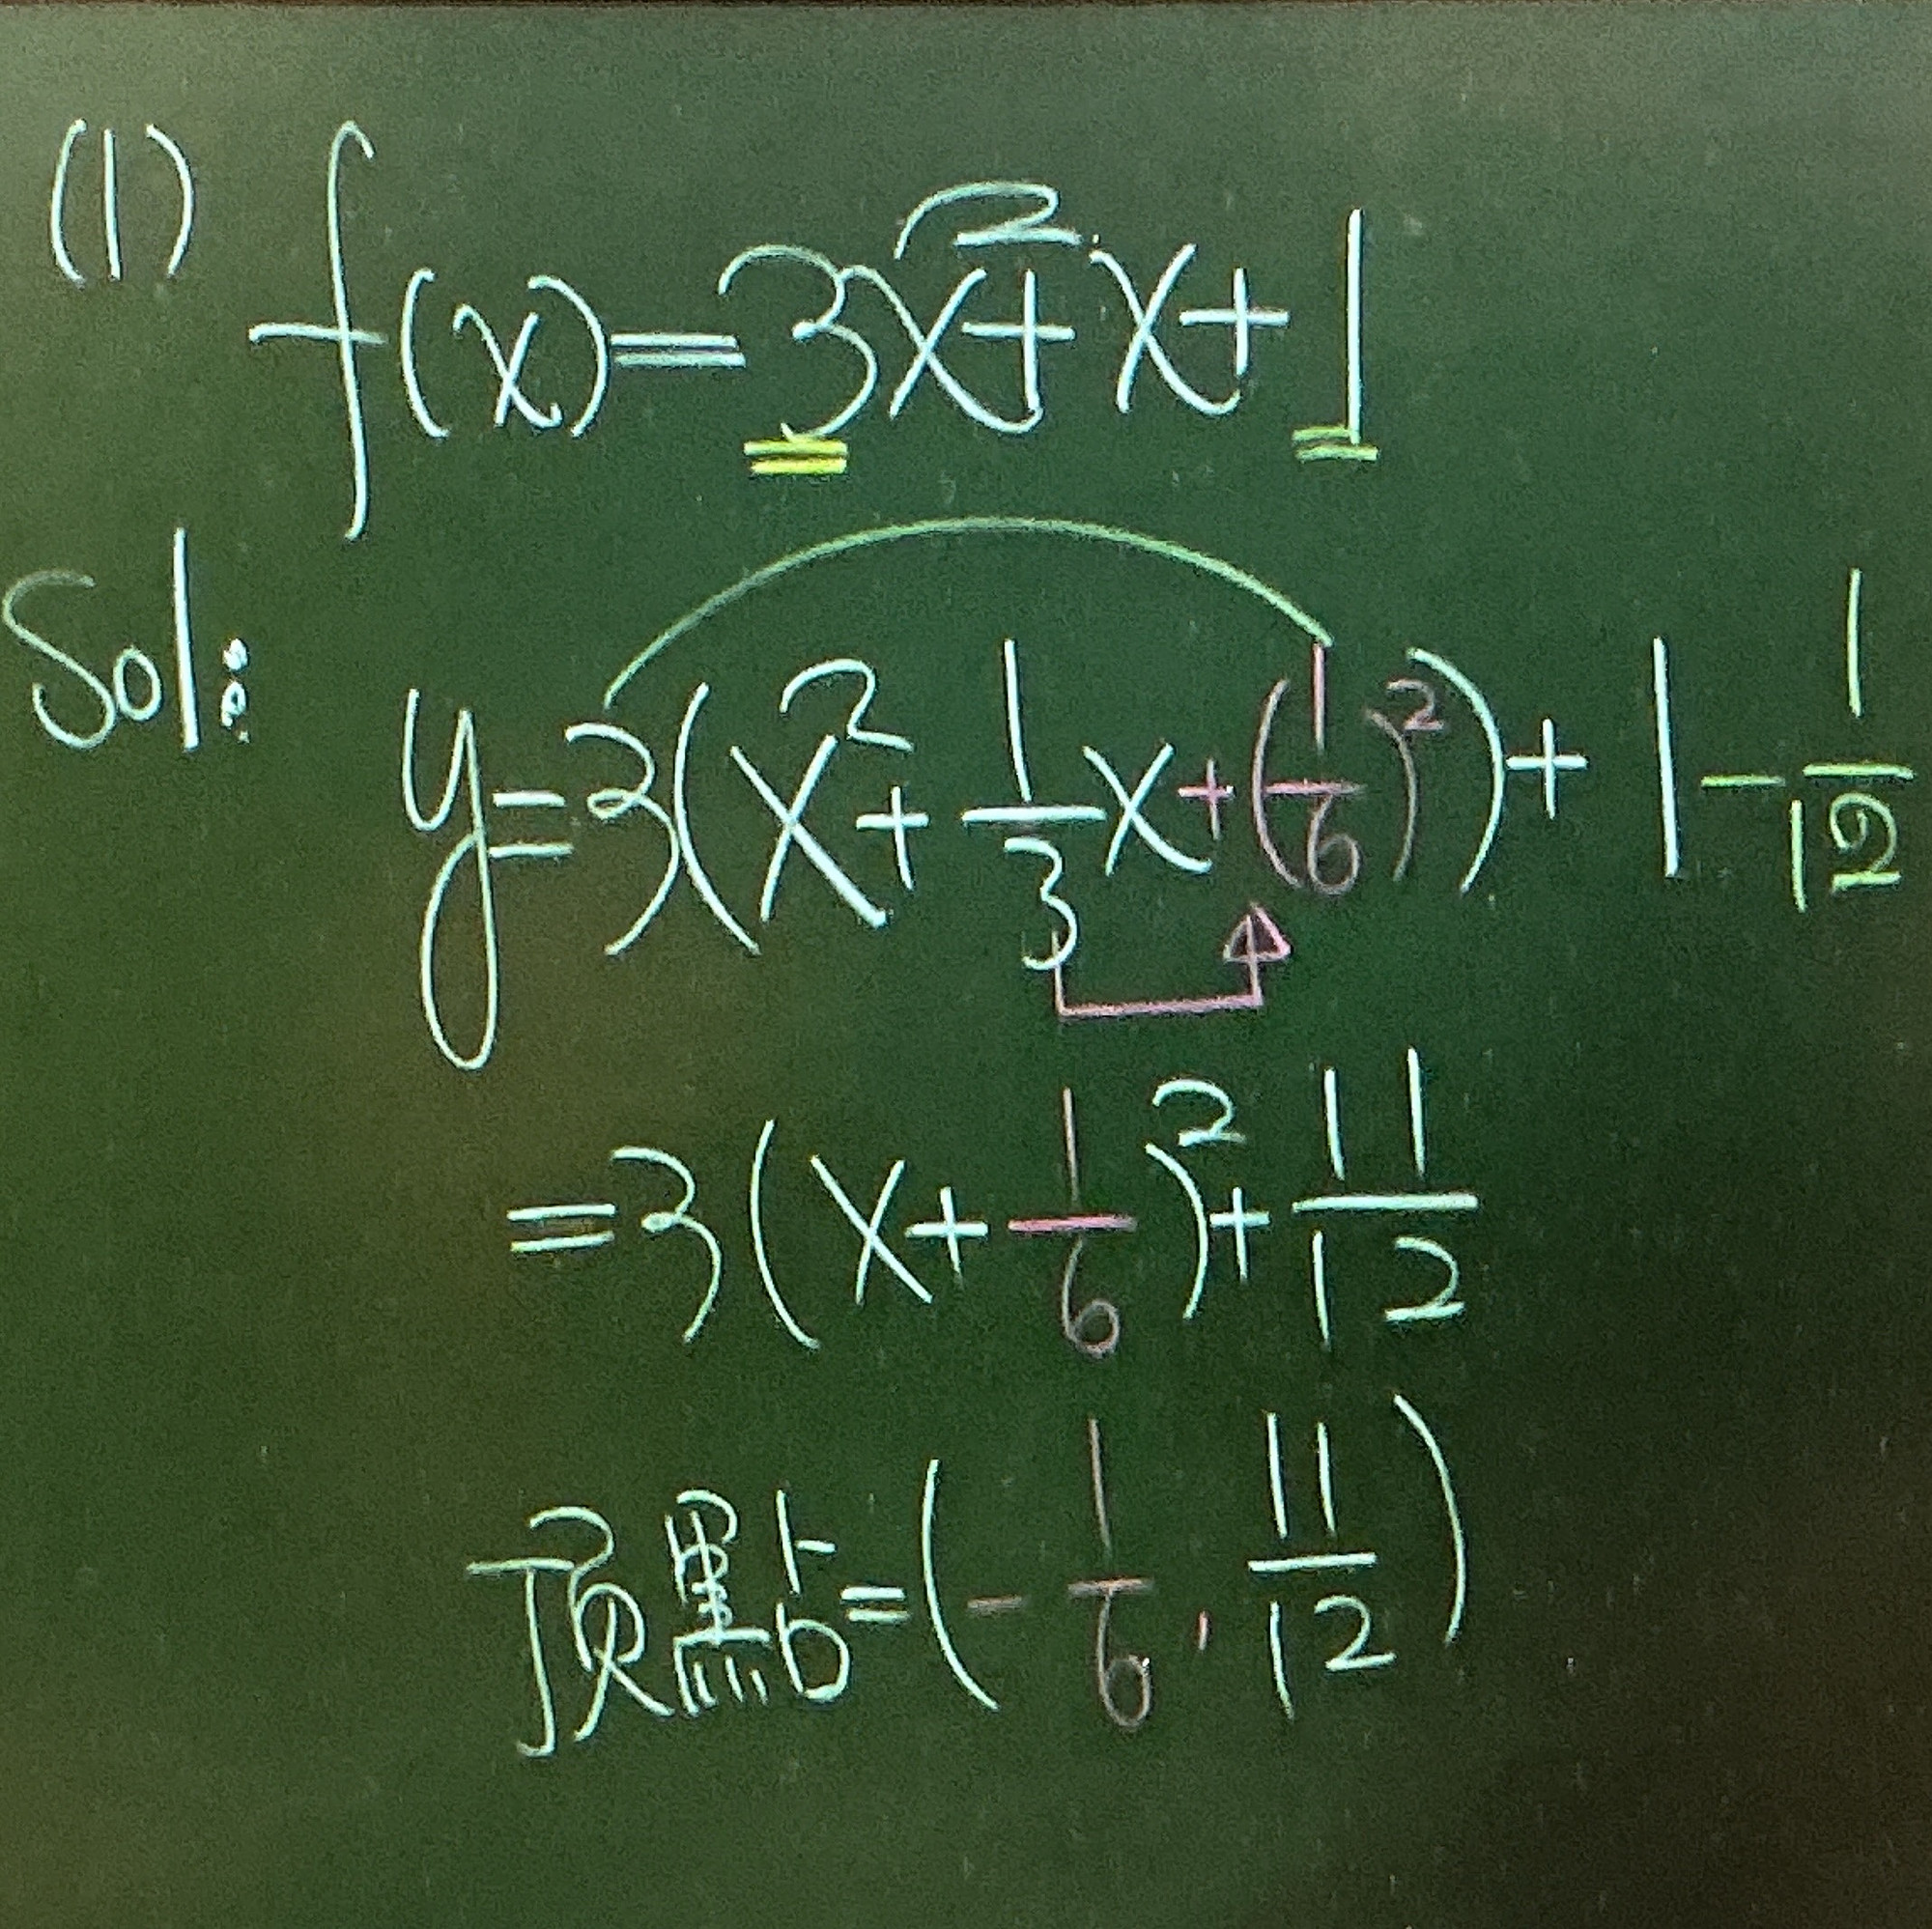 (1) f(x)=3x²+x+1
Sol:
y=3(x²+1/3x+(1/6)²)+1-1/12
=3(x+1/6)²+11/12
頂點=(-1/6,11/12)